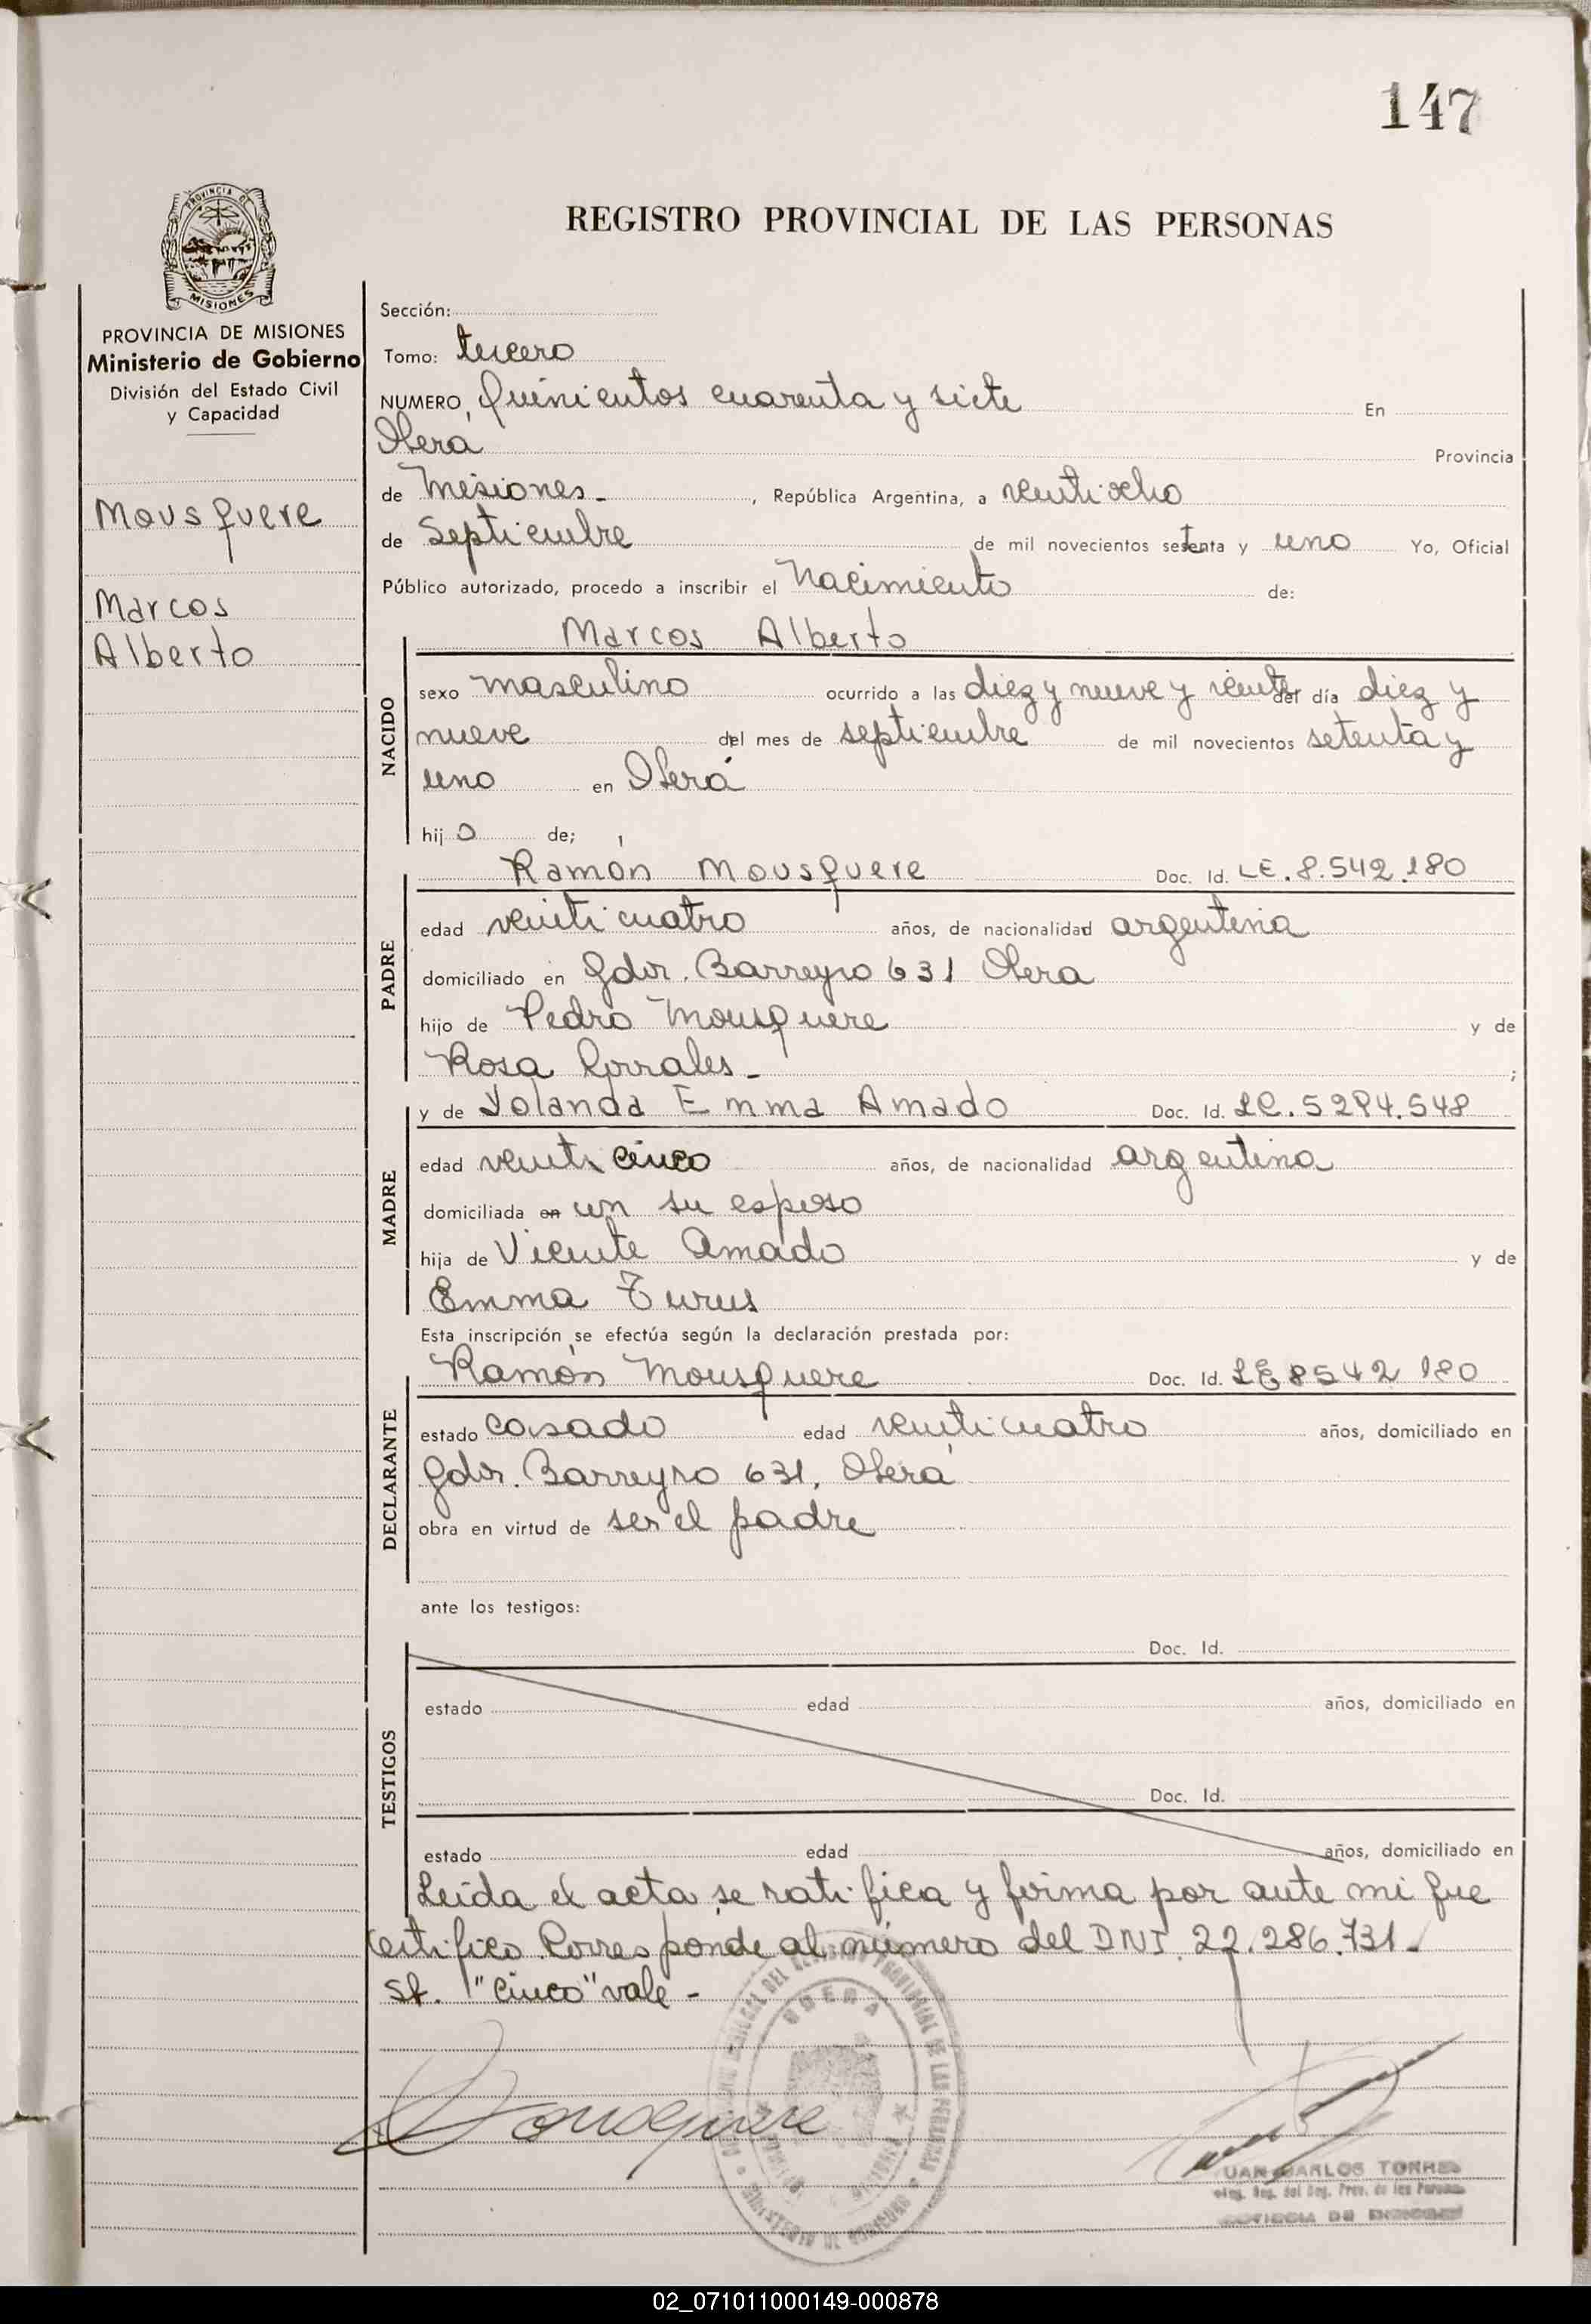 147
REGISTRO PROVINCIAL DE LAS PERSONAS
PROVINCIA DE
MISIONES
PROVINCIA DE MISIONES
Ministerio de Gobierno
División del Estado Civil
y Capacidad
Mousquere
Marcos
Alberto
Sección:
Tomo: tercero
NUMERO, Quinientos cuarenta y siete En
Oberá Provincia
de Misiones - , República Argentina, a veintiocho
de Septiembre de mil novecientos setenta y uno Yo, Oficial
Público autorizado, procedo a inscribir el Nacimiento de:
Marcos Alberto
NACIDO
sexo masculino ocurrido a las diez y nueve y veinte del día diez y
nueve del mes de septiembre de mil novecientos setenta y
uno en Oberá
hijo de;
PADRE
Ramón Mousquere Doc. Id. LE. 8.542.180
edad veinticuatro años, de nacionalidad argentina
domiciliado en Gdor. Barreyro 631 Obera
hijo de Pedro Mousquere y de
Rosa Corrales - ;
MADRE
y de Yolanda Emma Amado Doc. Id. LC. 5294.548
edad veinti cinco años, de nacionalidad argentina
domiciliada en con su esposo
hija de Vicente Amado y de
Emma
Esta inscripción se efectúa según la declaración prestada por:
DECLARANTE
Ramón Mousquere Doc. Id. LE 8542 180
estado casado edad veinticuatro años, domiciliado en
Gdor. Barreyro 631, Oberá
obra en virtud de ser el padre
ante los testigos:
TESTIGOS
Doc. Id.
estado edad años, domiciliado en
Doc. Id.
estado edad años, domiciliado en
Leída el acta se ratifica y firma por ante mi que
certifico. Corresponde al número del DNI. 22.286.731 -
"cinco" vale -
Mousquere
OBERA
JUAN CARLOS TORRES
PROVINCIA DE MISIONES
02_071011000149-000878